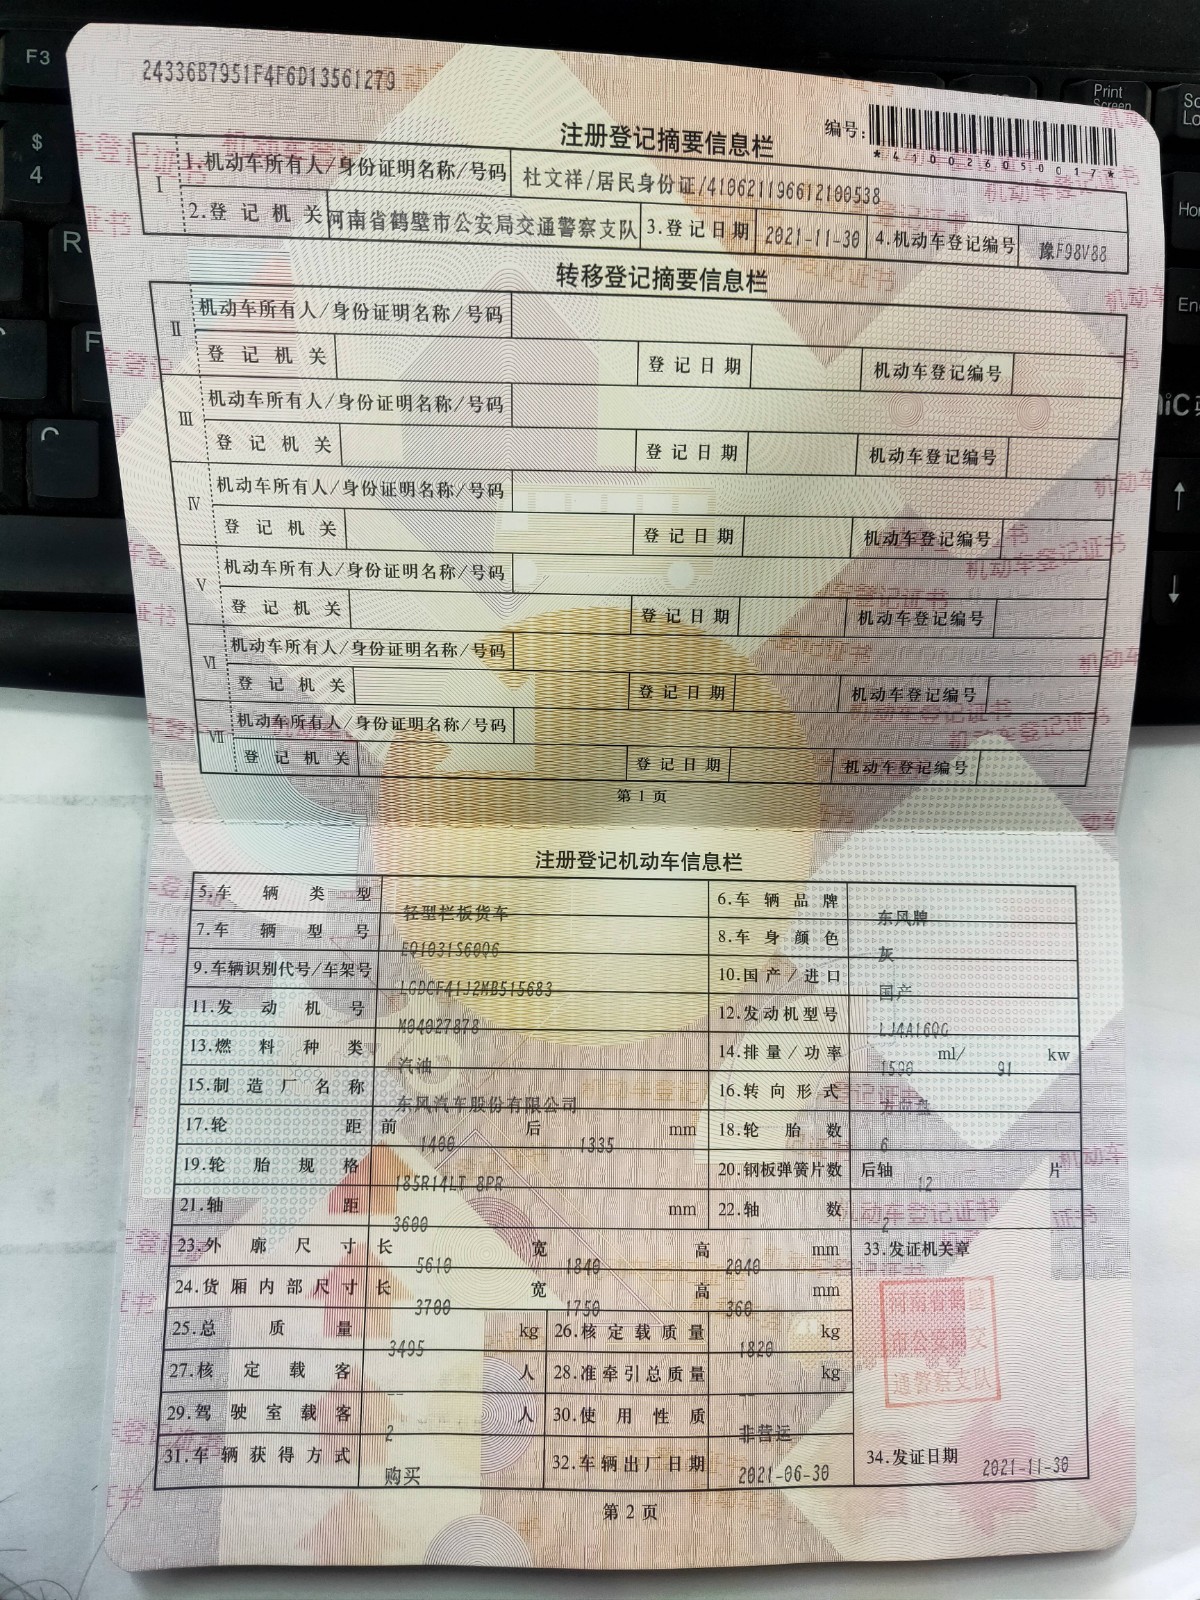 24336B7951F4F6D13561279
编号:
*410026050017*
注册登记摘要信息栏
I
1.机动车所有人/身份证明名称/号码 杜文祥/居民身份证/410621196612100538
2.登记机关 河南省鹤壁市公安局交通警察支队 3.登记日期 2021-11-30 4.机动车登记编号 豫F98V88
转移登记摘要信息栏
II
机动车所有人/身份证明名称/号码
登记机关 登记日期 机动车登记编号
III
机动车所有人/身份证明名称/号码
登记机关 登记日期 机动车登记编号
IV
机动车所有人/身份证明名称/号码
登记机关 登记日期 机动车登记编号
V
机动车所有人/身份证明名称/号码
登记机关 登记日期 机动车登记编号
VI
机动车所有人/身份证明名称/号码
登记机关 登记日期 机动车登记编号
VII
机动车所有人/身份证明名称/号码
登记机关 登记日期 机动车登记编号
第1页
注册登记机动车信息栏
5.车辆类型 轻型栏板货车 6.车辆品牌 东风牌
7.车辆型号 EQ1031S60Q6 8.车身颜色 灰
9.车辆识别代号/车架号 LGDCF41J2MB515683 10.国产/进口 国产
11.发动机号 M04027878 12.发动机型号 LJ4A16QG
13.燃料种类 汽油 14.排量/功率 1590 ml/ 91 kw
15.制造厂名称 东风汽车股份有限公司 16.转向形式 方向盘
17.轮距 前 1400 后 1335 mm 18.轮胎数 6
19.轮胎规格 185R14LT 8PR 20.钢板弹簧片数 后轴 12 片
21.轴距 3600 mm 22.轴数 2
23.外廓尺寸 长 5610 宽 1840 高 2040 mm 33.发证机关章
24.货厢内部尺寸 长 3700 宽 1750 高 360 mm
25.总质量 3495 kg 26.核定载质量 1820 kg
27.核定载客 -- 人 28.准牵引总质量 -- kg
29.驾驶室载客 2 人 30.使用性质 非营运
31.车辆获得方式 购买 32.车辆出厂日期 2021-06-30 34.发证日期 2021-11-30
第2页